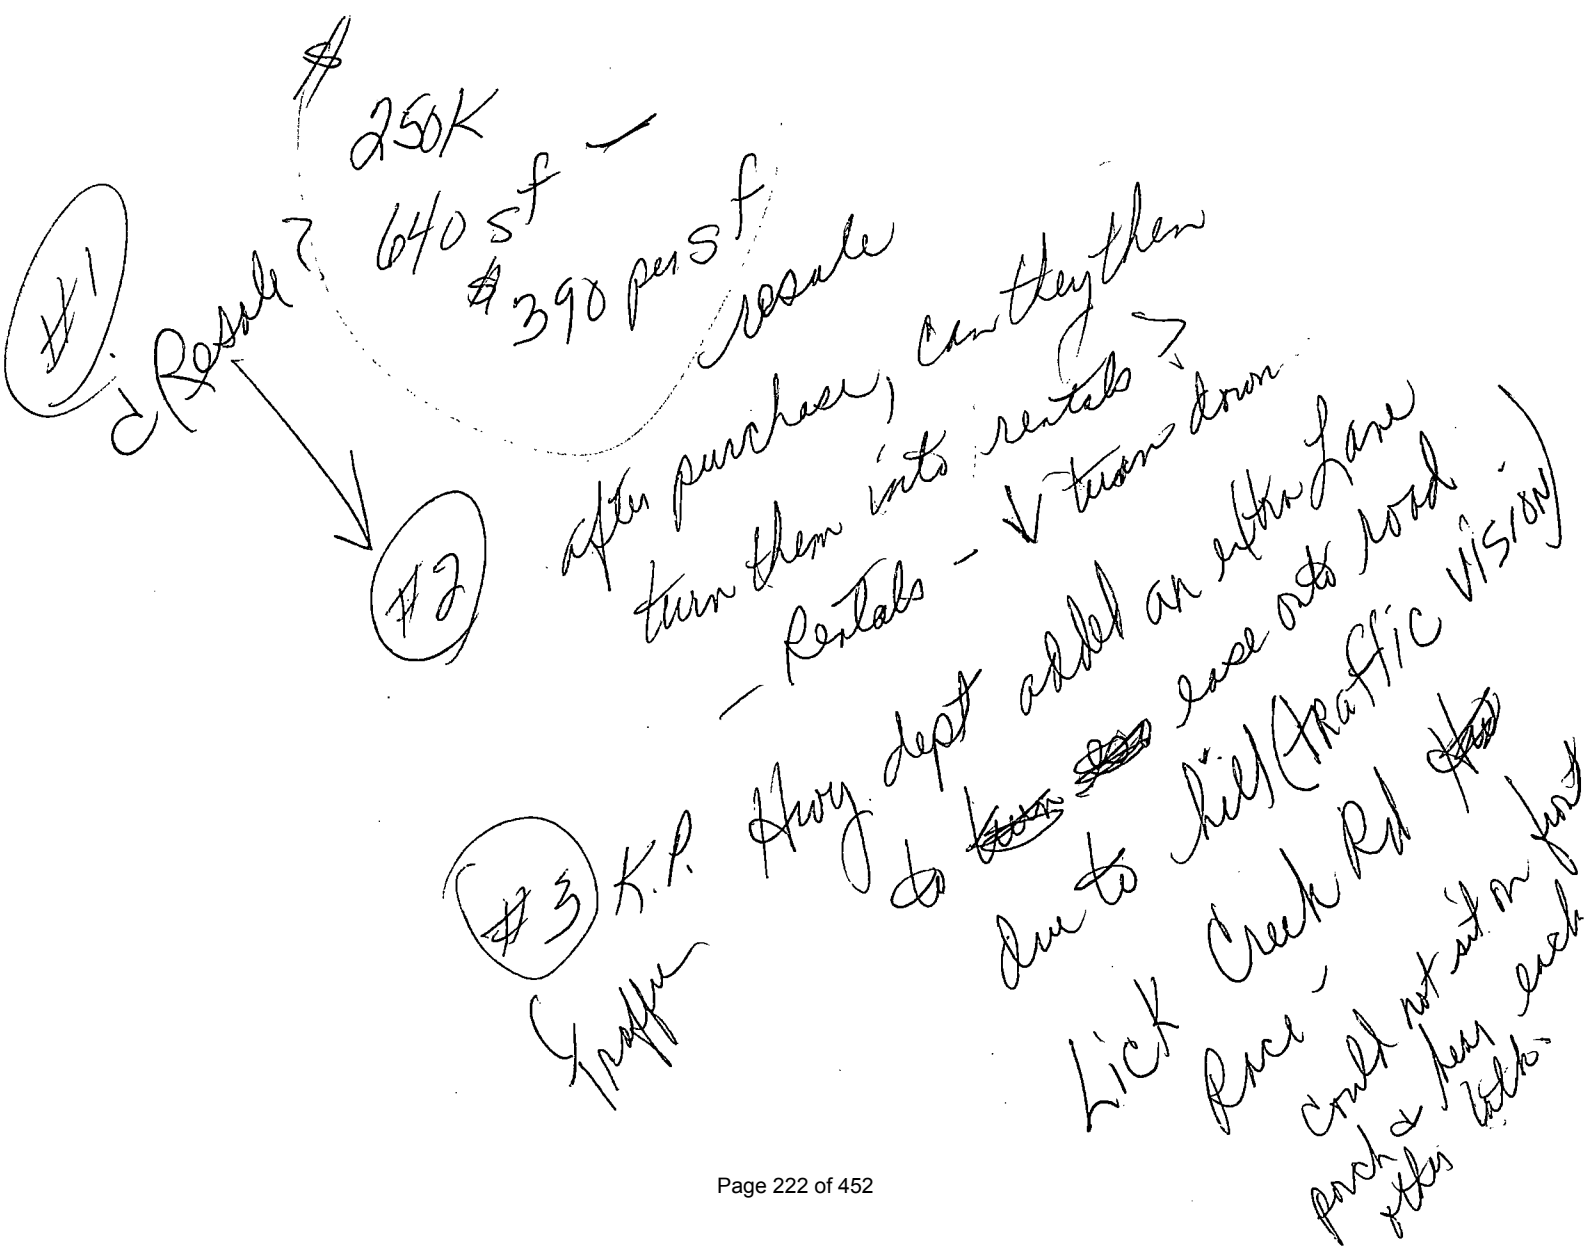 $
250K
640 sf -
$390 per sf
resale
#1
Resale?
#2
after purchase, can they then
turn them into rentals?
- Rentals - ↓ turn down
#3 K.P.
Traffic
Hwy dept added an extra Lane
to ease onto road
due to hill (traffic vision)
Lick Creek Rd
Race -
could not sit on front
porch & hear each
other talk.
Page 222 of 452